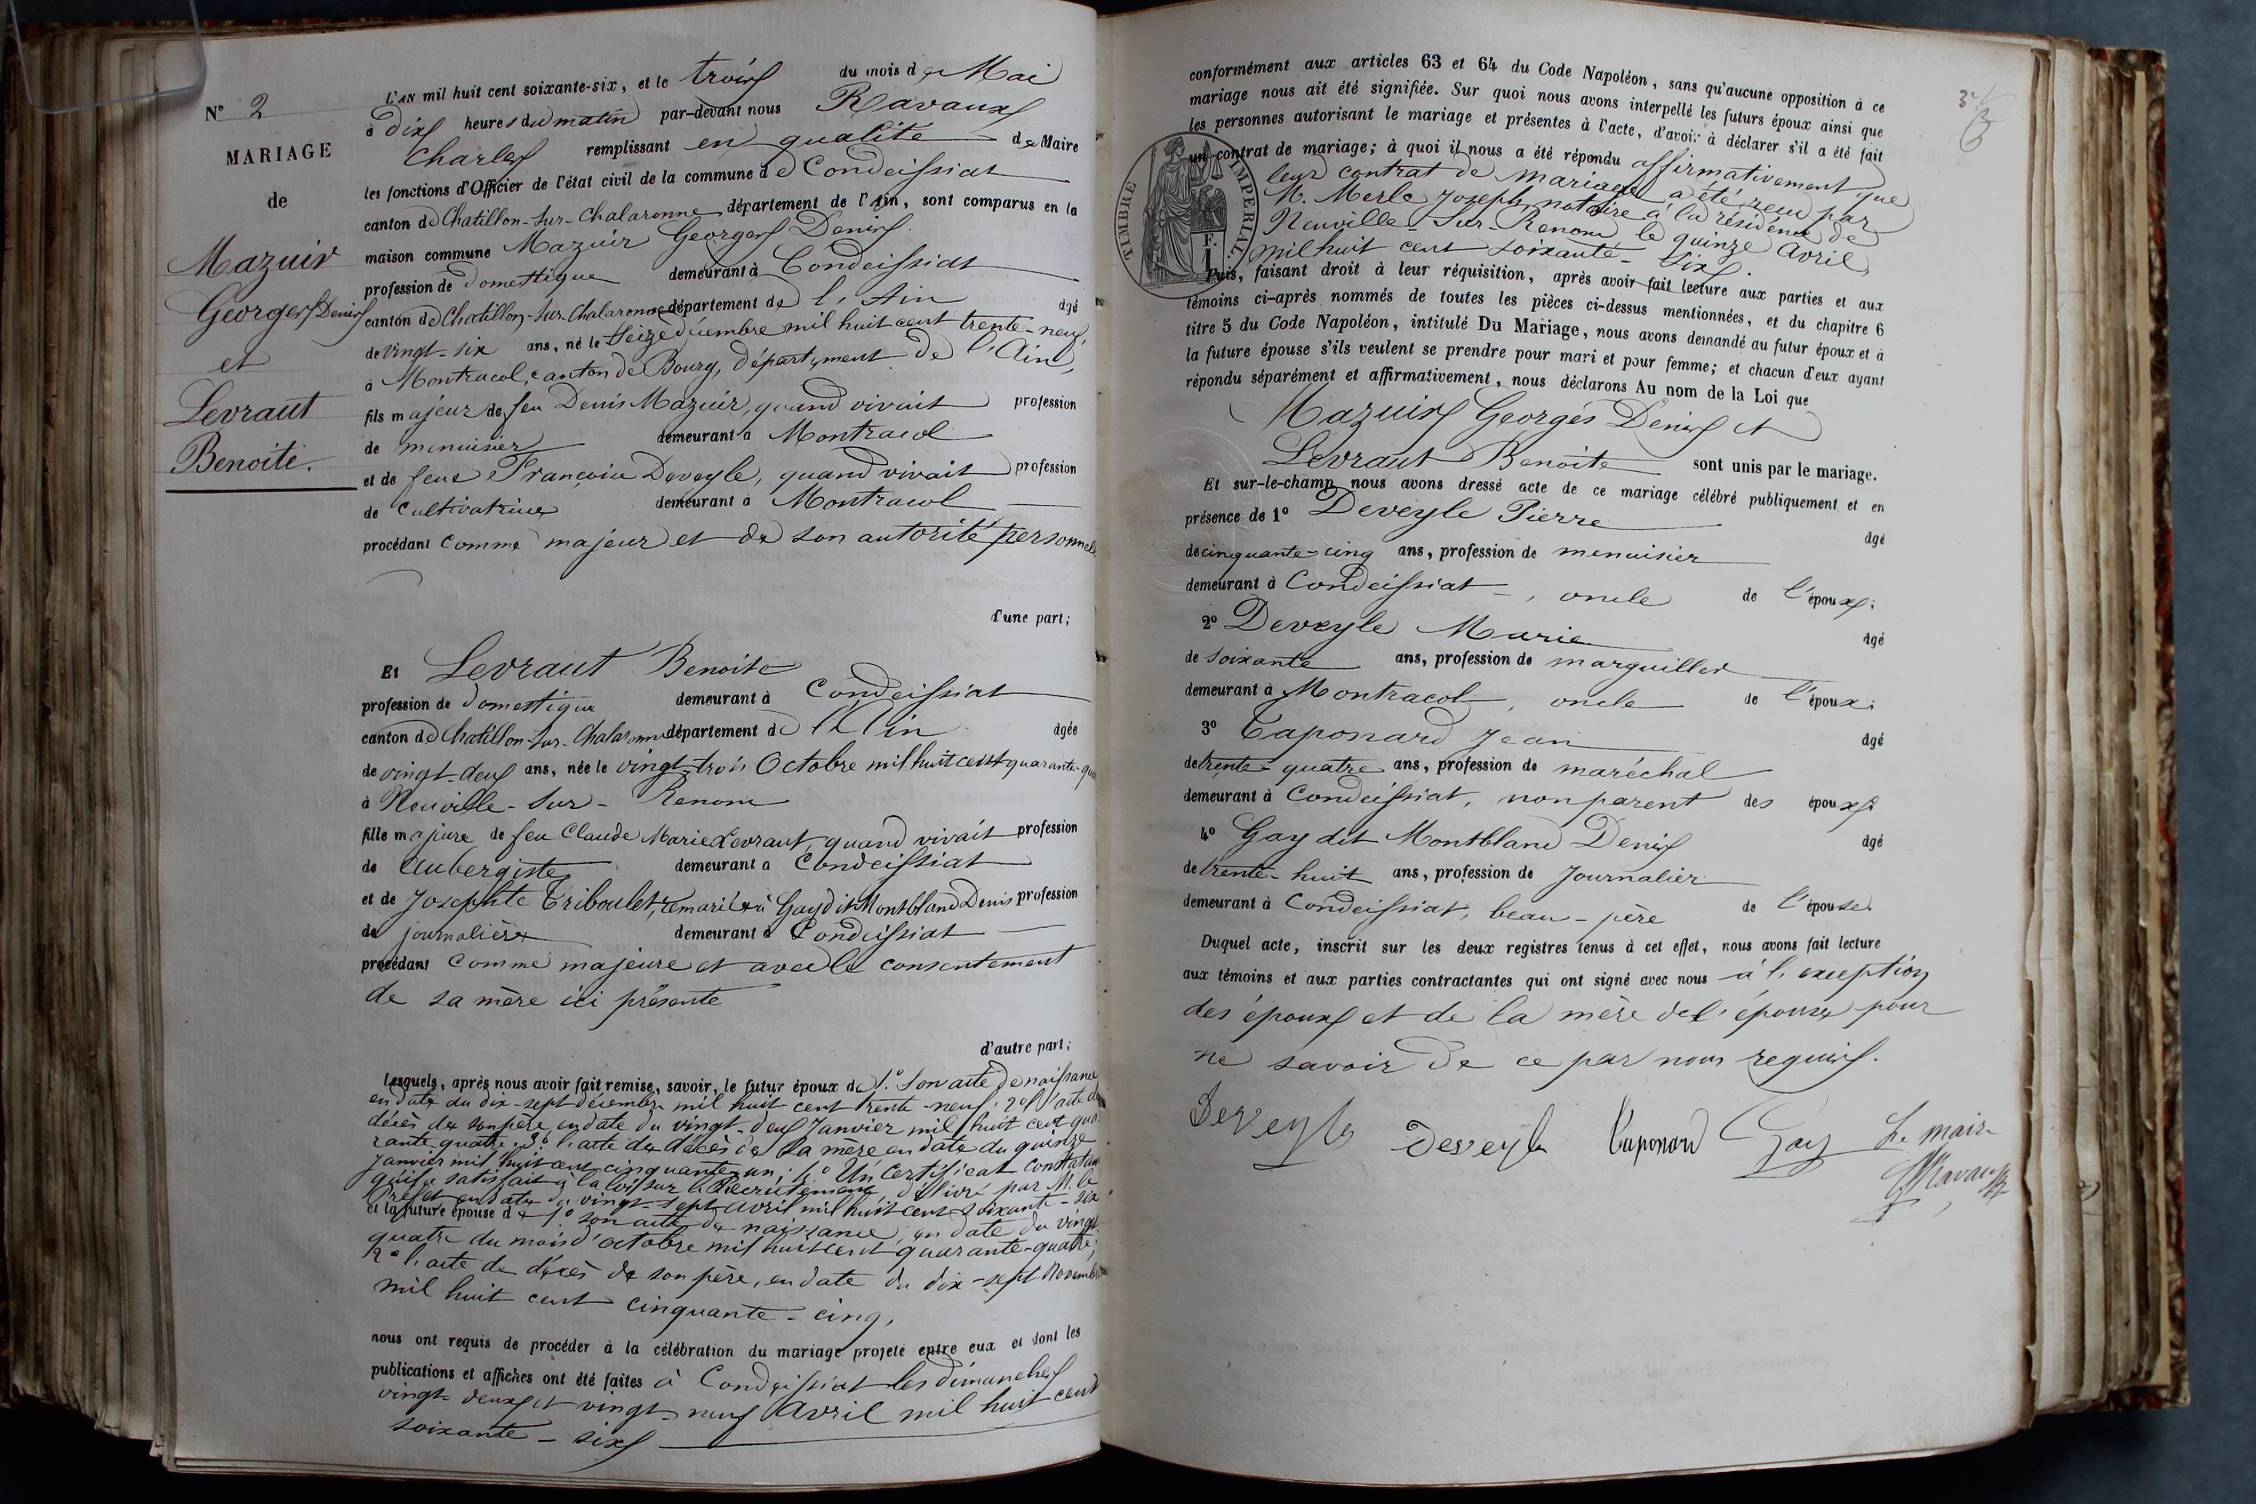 N° 2
MARIAGE
de
Mazuir
Georges Denis
et
Levraut
Benoite.
L'AN mil huit cent soixante-six, et le trois du mois de Mai
à dix heures du matin par-devant nous Ravaux
Charles remplissant en qualité de Maire
les fonctions d'Officier de l'état civil de la commune de Condeissiat
canton de Chatillon-sur-Chalaronne département de l'Ain, sont comparus en la
maison commune Mazuir Georges Denis.
profession de domestique demeurant à Condeissiat
canton de Chatillon-sur-Chalaronne département de l'Ain âgé
de vingt-six ans, né le seize décembre mil huit cent trente-neuf,
à Montracol, canton de Bourg, département de l'Ain,
fils majeur de feu Denis Mazuir, quand vivait profession
de menuisier demeurant à Montracol
et de feue Françoise Deveyle, quand vivait profession
de cultivatrice demeurant à Montracol
procédant comme majeur et de son autorité personnelle
d'une part;
Et Levraut Benoite
profession de domestique demeurant à Condeissiat
canton de Chatillon-sur-Chalaronne département de l'Ain âgée
de vingt-deux ans, née le vingt-trois Octobre mil huit cent quarante-qua
à Neuville-sur-Renom
fille majeure de feu Claude Marie Levraut, quand vivait profession
de Aubergiste demeurant à Condeissiat
et de Josephte Triboulet, remariée à Gay dit Montbland Denis profession
de journalière demeurant à Condeissiat
procédant comme majeure et avec le consentement
de sa mère ici présente
d'autre part;
Lesquels, après nous avoir fait remise, savoir, le futur époux de 1° Son acte de naissance
en date du dix-sept décembre mil huit cent trente-neuf; 2° l'acte de
décès de son père, en date du vingt-deux Janvier mil huit cent qua
rante quatre; 3° l'acte de décès de sa mère en date du quinze
Janvier mil huit cent cinquante-un; 4° Un Certificat constatant
qu'il a satisfait à la loi sur le Recrutement, délivré par M. le
Préfet en date du vingt-sept avril mil huit cent soixante-six
et la future épouse de 1° son acte de naissance, en date du vingt
quatre du mois d'octobre mil huit cent quarante-quatre;
2° l'acte de décès de son père, en date du dix-sept Novembre
mil huit cent cinquante-cinq,
nous ont requis de procéder à la célébration du mariage projeté entre eux et dont les
publications et affiches ont été faites à Condeissiat les dimanches
vingt-deux et vingt-neuf Avril mil huit cent
soixante-six
conformément aux articles 63 et 64 du Code Napoléon, sans qu'aucune opposition à ce
mariage nous ait été signifiée. Sur quoi nous avons interpellé les futurs époux ainsi que
les personnes autorisant le mariage et présentes à l'acte, d'avoir à déclarer s'il a été fait
un contrat de mariage; à quoi il nous a été répondu affirmativement que
leur contrat de mariage a été reçu par
M. Merle Joseph, notaire à la résidence de
Neuville-sur-Renom le quinze Avril
mil huit cent soixante-six.
TIMBRE IMPERIAL
F. 1
Puis, faisant droit à leur réquisition, après avoir fait lecture aux parties et aux
témoins ci-après nommés de toutes les pièces ci-dessus mentionnées, et du chapitre 6
titre 5 du Code Napoléon, intitulé Du Mariage, nous avons demandé au futur époux et à
la future épouse s'ils veulent se prendre pour mari et pour femme; et chacun d'eux ayant
répondu séparément et affirmativement, nous déclarons Au nom de la Loi que
Mazuir Georges Denis et
Levraut Benoite sont unis par le mariage.
Et sur-le-champ nous avons dressé acte de ce mariage célébré publiquement et en
présence de 1° Deveyle Pierre âgé
de cinquante-cinq ans, profession de menuisier
demeurant à Condeissiat, oncle de l'époux;
2° Deveyle Marie âgé
de soixante ans, profession de marguiller
demeurant à Montracol, oncle de l'époux;
3° Taponard Jean âgé
de trente-quatre ans, profession de maréchal
demeurant à Condeissiat, non parent des époux;
4° Gay dit Montbland Denis âgé
de trente-huit ans, profession de Journalier
demeurant à Condeissiat, beau-père de l'épouse.
Duquel acte, inscrit sur les deux registres tenus à cet effet, nous avons fait lecture
aux témoins et aux parties contractantes qui ont signé avec nous à l'exception
des époux et de la mère de l'épouse pour
ne savoir de ce par nous requis.
Deveyle Deveyle Taponard Gay Le maire
Ravaux